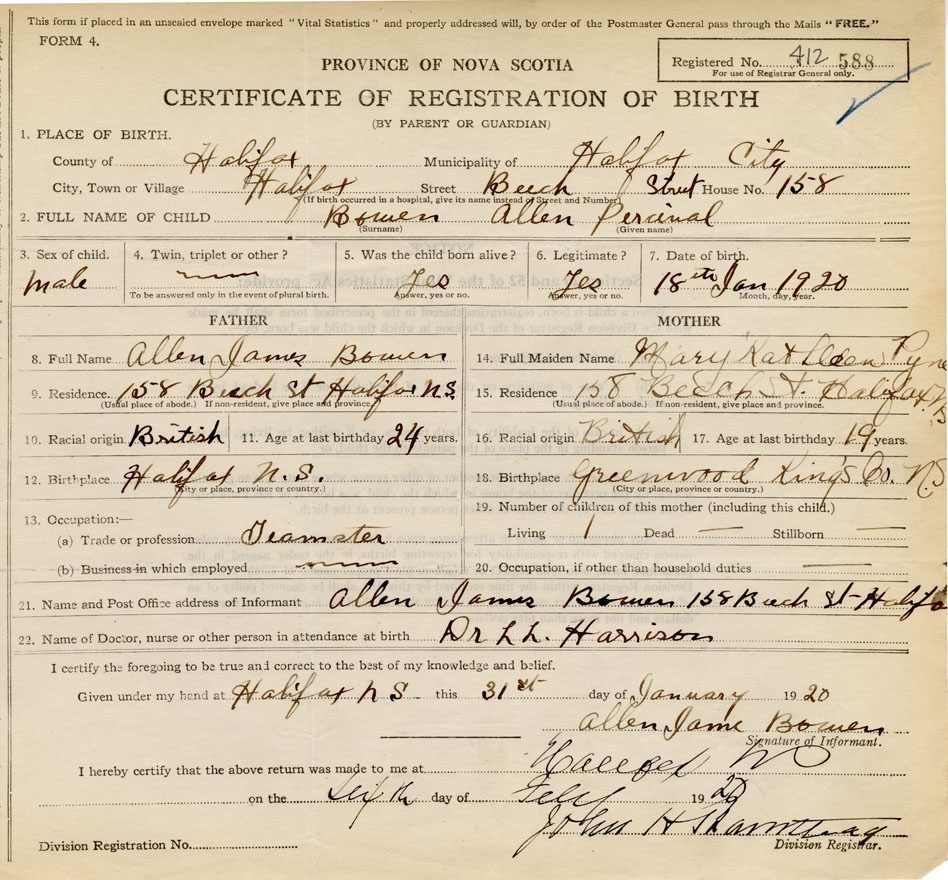 This form if placed in an unsealed envelope marked "Vital Statistics" and properly addressed will, by order of the Postmaster General pass through the Mails "FREE."
FORM 4.
Registered No. 412 588
For use of Registrar General only.
PROVINCE OF NOVA SCOTIA
CERTIFICATE OF REGISTRATION OF BIRTH
(BY PARENT OR GUARDIAN)
1. PLACE OF BIRTH.
County of Halifax Municipality of Halifax City
City, Town or Village Halifax Street Beech Street House No. 158
(If birth occurred in a hospital, give its name instead of Street and Number)
2. FULL NAME OF CHILD Bowen Allen Percival
(Surname) (Given name)
3. Sex of child. 4. Twin, triplet or other? 5. Was the child born alive? 6. Legitimate? 7. Date of birth.
Male Yes Yes 18th Jan 1920
To be answered only in the event of plural birth. Answer, yes or no. Answer, yes or no. Month, day, year.
FATHER MOTHER
8. Full Name Allen James Bowen 14. Full Maiden Name Mary Kathleen Pyne
9. Residence. 158 Beech St Halifax N.S. 15. Residence 158 Beech St. Halifax N.S
(Usual place of abode.) If non-resident, give place and province. (Usual place of abode.) If non-resident, give place and province.
10. Racial origin British 11. Age at last birthday 24 years. 16. Racial origin British 17. Age at last birthday 19 years.
12. Birthplace Halifax N.S. 18. Birthplace Greenwood King's Co. N.S
(City or place, province or country.) (City or place, province or country.)
13. Occupation:— 19. Number of children of this mother (including this child.)
(a) Trade or profession Teamster Living 1 Dead — Stillborn —
(b) Business in which employed 20. Occupation, if other than household duties —
21. Name and Post Office address of Informant Allen James Bowen 158 Beech St Halifax
22. Name of Doctor, nurse or other person in attendance at birth Dr L.L. Harrison
I certify the foregoing to be true and correct to the best of my knowledge and belief.
Given under my hand at Halifax N S this 31st day of January 1920
Allen Jame Bowen
Signature of Informant.
I hereby certify that the above return was made to me at
on the Sixth day of Feby 1920
John H
Division Registration No. Division Registrar.